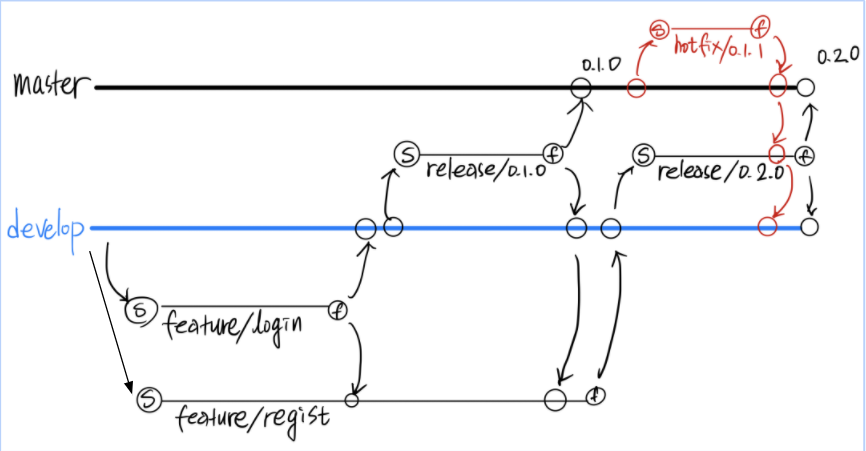 S
f
hotfix/0.1.1
0.1.0
0.2.0
master
S
f
release/0.1.0
S
f
release/0.2.0
develop
S
f
feature/login
S
f
feature/regist